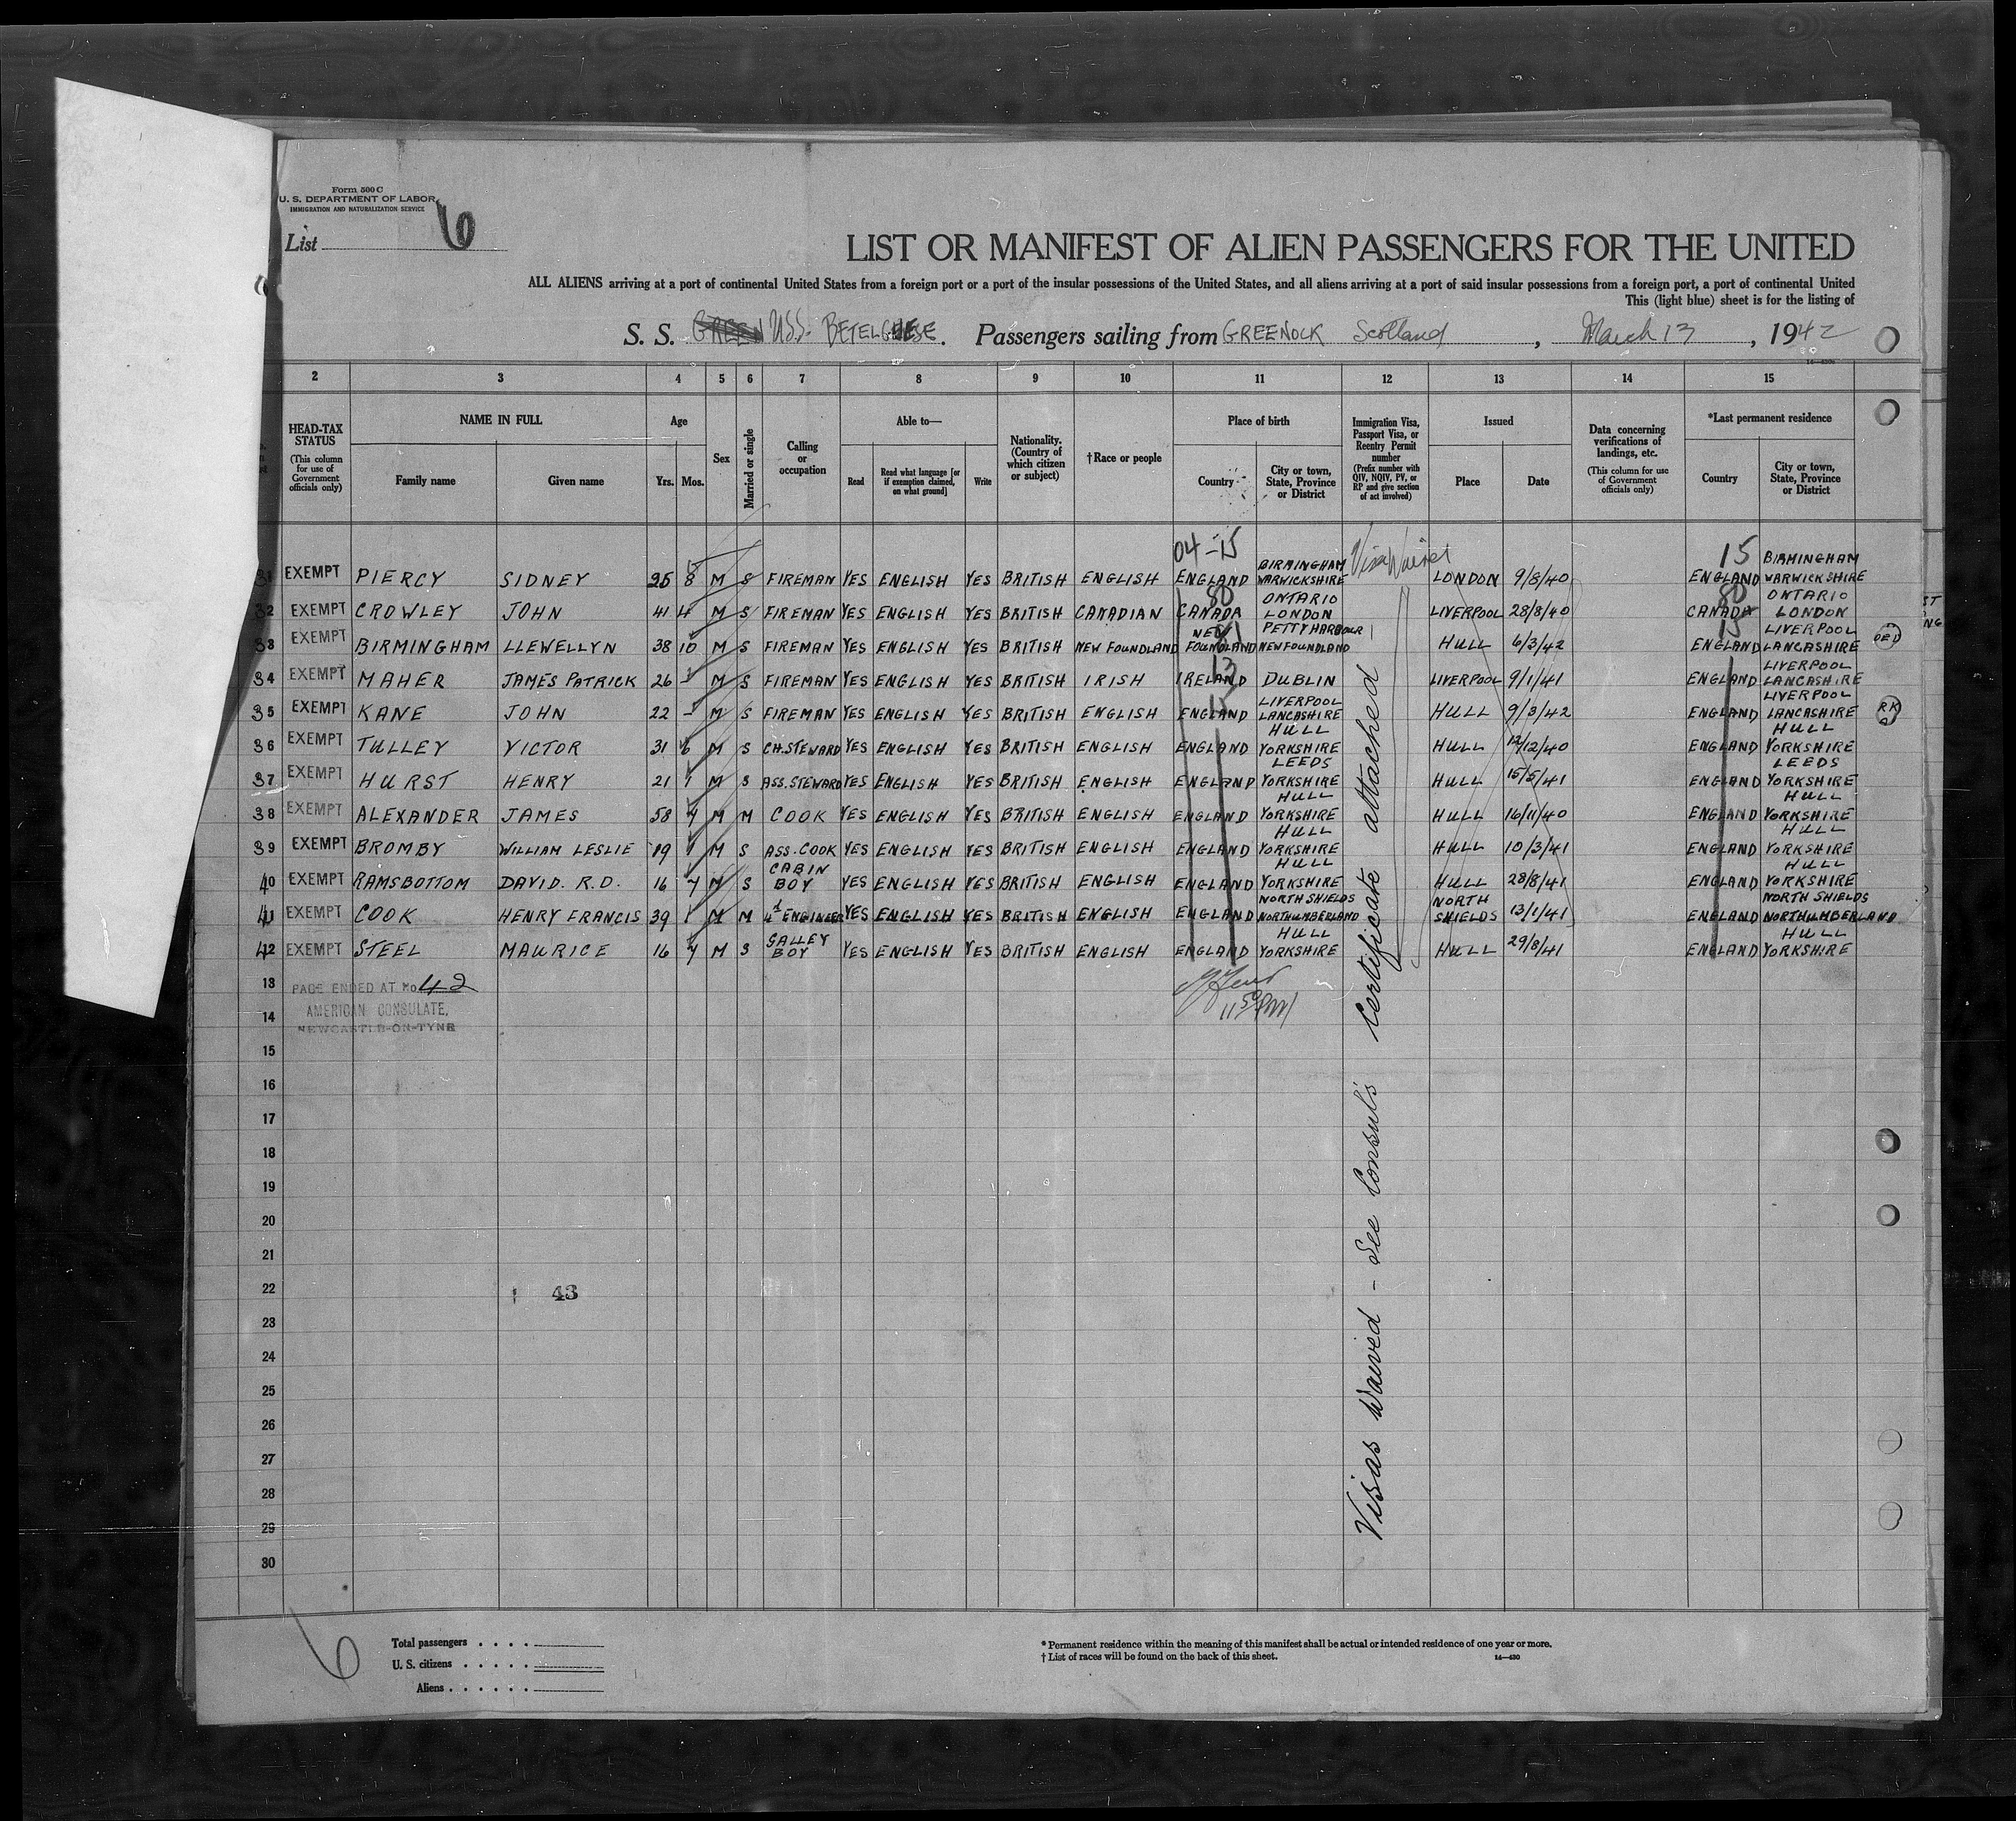 Form 500 C
U. S. DEPARTMENT OF LABOR
IMMIGRATION AND NATURALIZATION SERVICE
List 6
LIST OR MANIFEST OF ALIEN PASSENGERS FOR THE UNITED
ALL ALIENS arriving at a port of continental United States from a foreign port or a port of the insular possessions of the United States, and all aliens arriving at a port of said insular possessions from a foreign port, a port of continental United
This (light blue) sheet is for the listing of
S. S. GREEN U.S.S. BETELGUESE. Passengers sailing from GREENOCK Scotland, March 13, 1942
2 3 4 5 6 7 8 9 10 11 12 13 14 15
HEAD-TAX STATUS (This column for use of Government officials only)
NAME IN FULL Family name Given name
Age Yrs. Mos.
Sex
Married or single
Calling or occupation
Able to— Read Read what language [or if exemption claimed, on what ground] Write
Nationality. (Country of which citizen or subject)
†Race or people
Place of birth Country City or town, State, Province or District
Immigration Visa, Passport Visa, or Reentry Permit number (Prefix number with QIV, NQIV, PV, or RP and give section of act involved)
Issued Place Date
Data concerning verifications of landings, etc. (This column for use of Government officials only)
*Last permanent residence Country City or town, State, Province or District
04-15 Visa Waived 15
31 EXEMPT PIERCY SIDNEY 25 8 M S FIREMAN YES ENGLISH YES BRITISH ENGLISH ENGLAND BIRMINGHAM WARWICKSHIRE LONDON 9/8/40 ENGLAND BIRMINGHAM WARWICKSHIRE
32 EXEMPT CROWLEY JOHN 41 4 M S FIREMAN YES ENGLISH YES BRITISH CANADIAN 80 CANADA ONTARIO LONDON LIVERPOOL 28/8/40 80 CANADA ONTARIO LONDON
33 EXEMPT BIRMINGHAM LLEWELLYN 38 10 M S FIREMAN YES ENGLISH YES BRITISH NEW FOUNDLAND NEW FOUNDLAND 81 PETTY HARBOUR NEWFOUNDLAND HULL 6/3/42 15 ENGLAND LIVERPOOL LANCASHIRE
34 EXEMPT MAHER JAMES PATRICK 26 - M S FIREMAN YES ENGLISH YES BRITISH IRISH 13 IRELAND DUBLIN LIVERPOOL 9/1/41 ENGLAND LIVERPOOL LANCASHIRE
35 EXEMPT KANE JOHN 22 - M S FIREMAN YES ENGLISH YES BRITISH ENGLISH 15 ENGLAND LIVERPOOL LANCASHIRE HULL 9/3/42 ENGLAND LIVERPOOL LANCASHIRE RK
36 EXEMPT TULLEY VICTOR 31 6 M S CH.STEWARD YES ENGLISH YES BRITISH ENGLISH ENGLAND HULL YORKSHIRE HULL 12/12/40 ENGLAND HULL YORKSHIRE
37 EXEMPT HURST HENRY 21 1 M S ASS.STEWARD YES ENGLISH YES BRITISH ENGLISH ENGLAND LEEDS YORKSHIRE HULL 15/5/41 ENGLAND LEEDS YORKSHIRE
38 EXEMPT ALEXANDER JAMES 58 4 M M COOK YES ENGLISH YES BRITISH ENGLISH ENGLAND HULL YORKSHIRE HULL 16/11/40 ENGLAND HULL YORKSHIRE
39 EXEMPT BROMBY WILLIAM LESLIE 19 1 M S ASS.COOK YES ENGLISH YES BRITISH ENGLISH ENGLAND HULL YORKSHIRE HULL 10/3/41 ENGLAND HULL YORKSHIRE
40 EXEMPT RAMSBOTTOM DAVID. R.D. 16 4 M S CABIN BOY YES ENGLISH YES BRITISH ENGLISH ENGLAND HULL YORKSHIRE HULL 28/8/41 ENGLAND HULL YORKSHIRE
41 EXEMPT COOK HENRY FRANCIS 39 1 M M ENGINEER YES ENGLISH YES BRITISH ENGLISH ENGLAND NORTH SHIELDS NORTHUMBERLAND NORTH SHIELDS 13/1/41 ENGLAND NORTH SHIELDS NORTHUMBERLAND
42 EXEMPT STEEL MAURICE 16 4 M S GALLEY BOY YES ENGLISH YES BRITISH ENGLISH ENGLAND HULL YORKSHIRE HULL 29/8/41 ENGLAND HULL YORKSHIRE
Visas Waived - See Consul's Certificate attached
13 PAGE ENDED AT No 42
14 AMERICAN CONSULATE,
NEWCASTLE-ON-TYNE
15
16
17
18
19
20
21
22 43
23
24
25
26
27
28
29
30
6
Total passengers
U. S. citizens
Aliens
* Permanent residence within the meaning of this manifest shall be actual or intended residence of one year or more.
† List of races will be found on the back of this sheet. 14—430